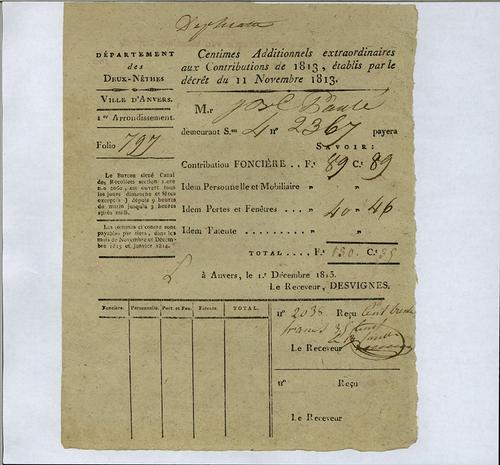 Duplicata
DÉPARTEMENT
des
DEUX-NÈTHES
VILLE D'ANVERS.
1.er Arrondissement.
Folio 797
Le Bureau situé Canal
des Recollets section 1.ere
n.o 2062, est ouvert tous
les jours dimanche et fêtes
exceptés depuis 9 heures
du matin jusqu'à 3 heures
après midi.
payables par tiers, dans les
mois de Novembre et Décem-
bre 1813 et janvier 1814.
Centimes Additionnels extraordinaires
aux Contributions de 1813, établis par le
décret du 11 Novembre 1813.
M.r
demeurant S.on 4 n° 2367 payera
SAVOIR:
Contribution FONCIÈRE . . F.s 89 C.s 89
Idem Personnelle et Mobiliaire " "
Idem Portes et Fenêtres . . . . " 40 " 46
Idem Patente . . . . . . . . . " "
TOTAL . . . . F.s 130. C.s 35
à Anvers, le 1.er Décembre 1813.
Le Receveur, DESVIGNES.
Foncière. Personnelle. Port. et Fen. Patente. TOTAL.
n° 2038 Reçu Cent trente
francs 35 Cent
Le Receveur
n° Reçu
Le Receveur